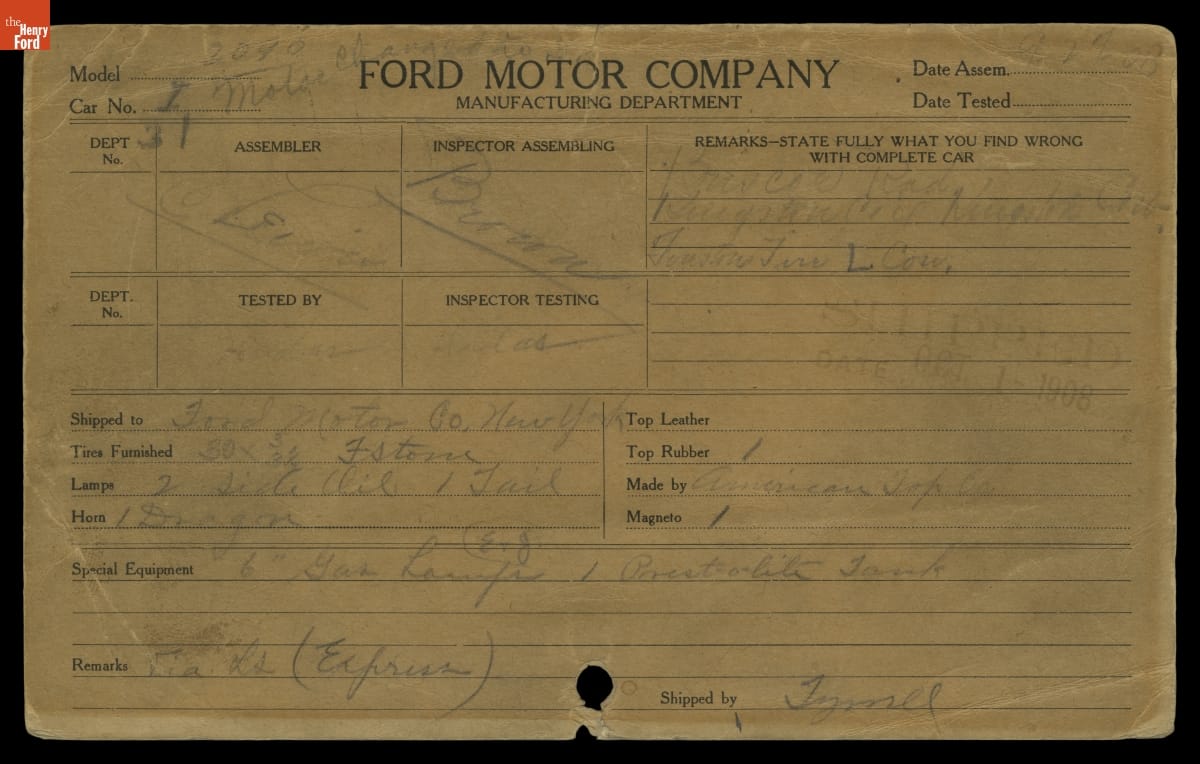 the Henry Ford
2090
Model
FORD MOTOR COMPANY
Date Assem.
Car No. 1 Motor changed to
MANUFACTURING DEPARTMENT
Date Tested
DEPT No. 31
ASSEMBLER
INSPECTOR ASSEMBLING
REMARKS—STATE FULLY WHAT YOU FIND WRONG WITH COMPLETE CAR
Brown
Briscoe Rad.
Kingston Coil Kingston Carb.
L Con.
DEPT. No.
TESTED BY
INSPECTOR TESTING
SHIPPED
DATE OCT 1 - 1908
Shipped to Ford Motor Co. New York
Tires Furnished 30 x 3 F-stone
Lamps 2 Side Oil 1 Tail
Horn 1 Dragon
Top Leather
Top Rubber 1
Made by American Top Co
Magneto 1
(E. J.
Special Equipment 6" Gas Lamps 1 Prest-o-lite Tank
Remarks Via (Express)
Shipped by Tyrrell